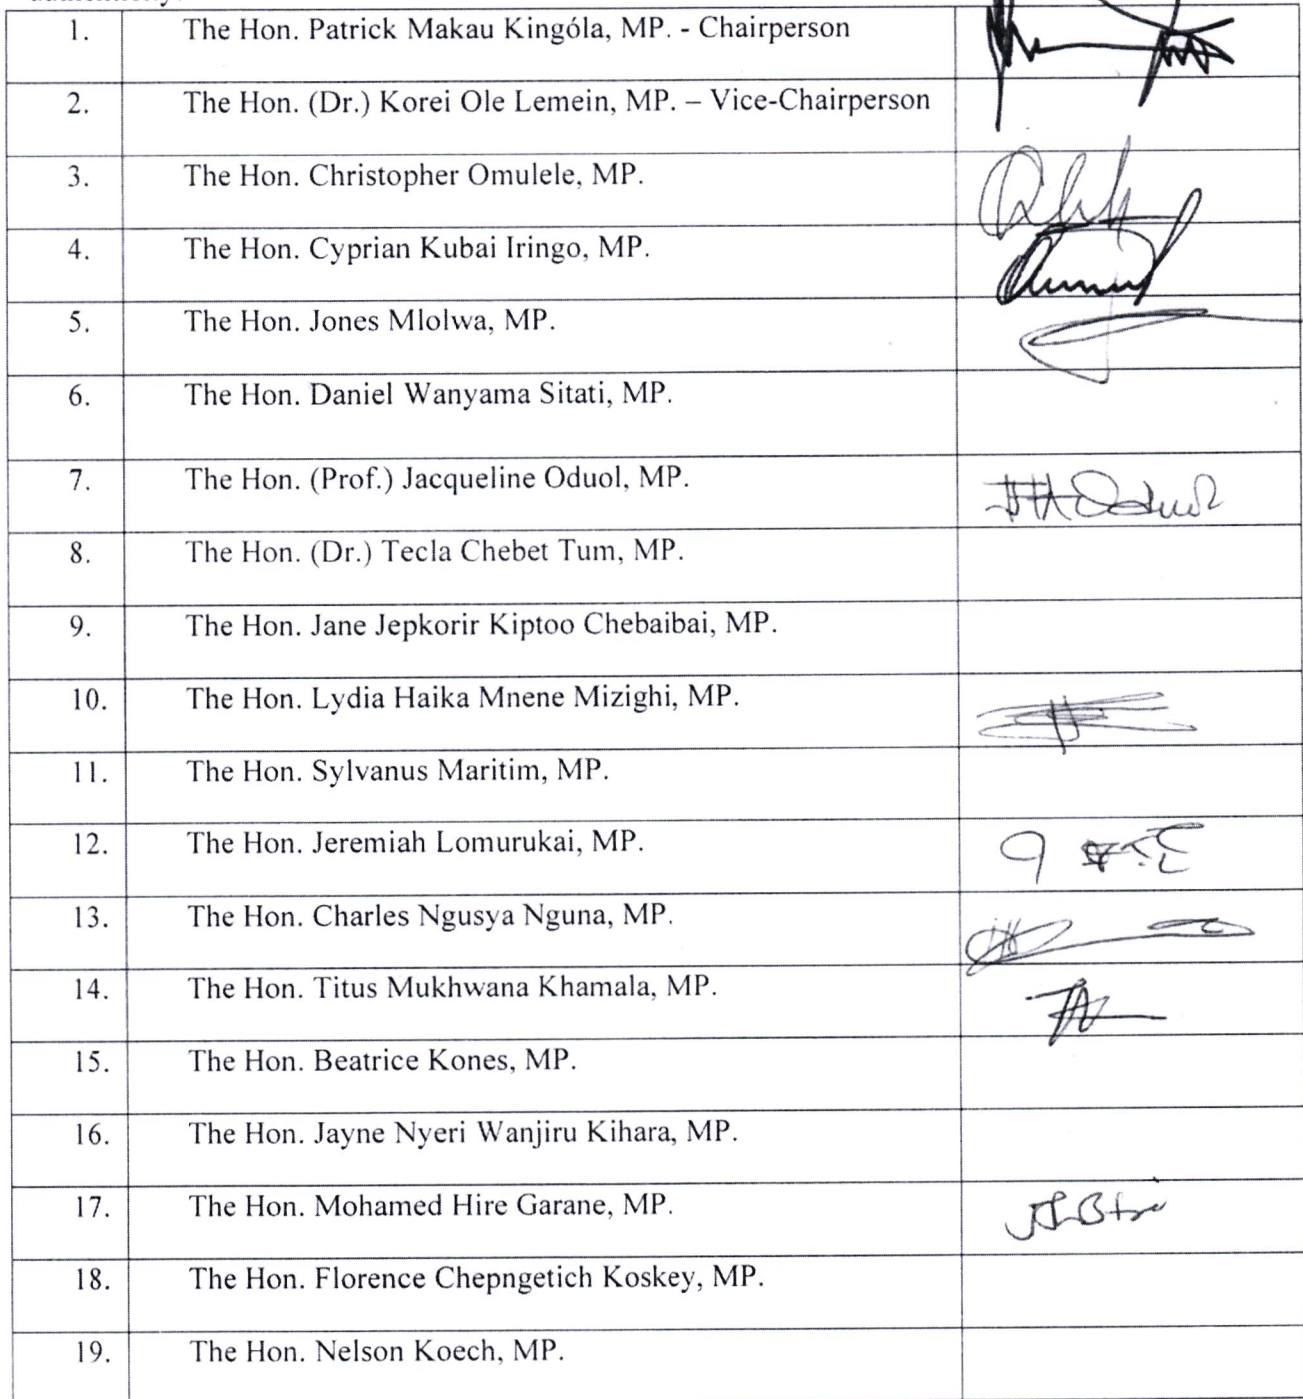 1. The Hon. Patrick Makau Kingóla, MP. - Chairperson
2. The Hon. (Dr.) Korei Ole Lemein, MP. – Vice-Chairperson
3. The Hon. Christopher Omulele, MP.
4. The Hon. Cyprian Kubai Iringo, MP.
5. The Hon. Jones Mlolwa, MP.
6. The Hon. Daniel Wanyama Sitati, MP.
7. The Hon. (Prof.) Jacqueline Oduol, MP.
8. The Hon. (Dr.) Tecla Chebet Tum, MP.
9. The Hon. Jane Jepkorir Kiptoo Chebaibai, MP.
10. The Hon. Lydia Haika Mnene Mizighi, MP.
11. The Hon. Sylvanus Maritim, MP.
12. The Hon. Jeremiah Lomurukai, MP.
13. The Hon. Charles Ngusya Nguna, MP.
14. The Hon. Titus Mukhwana Khamala, MP.
15. The Hon. Beatrice Kones, MP.
16. The Hon. Jayne Nyeri Wanjiru Kihara, MP.
17. The Hon. Mohamed Hire Garane, MP.
18. The Hon. Florence Chepngetich Koskey, MP.
19. The Hon. Nelson Koech, MP.